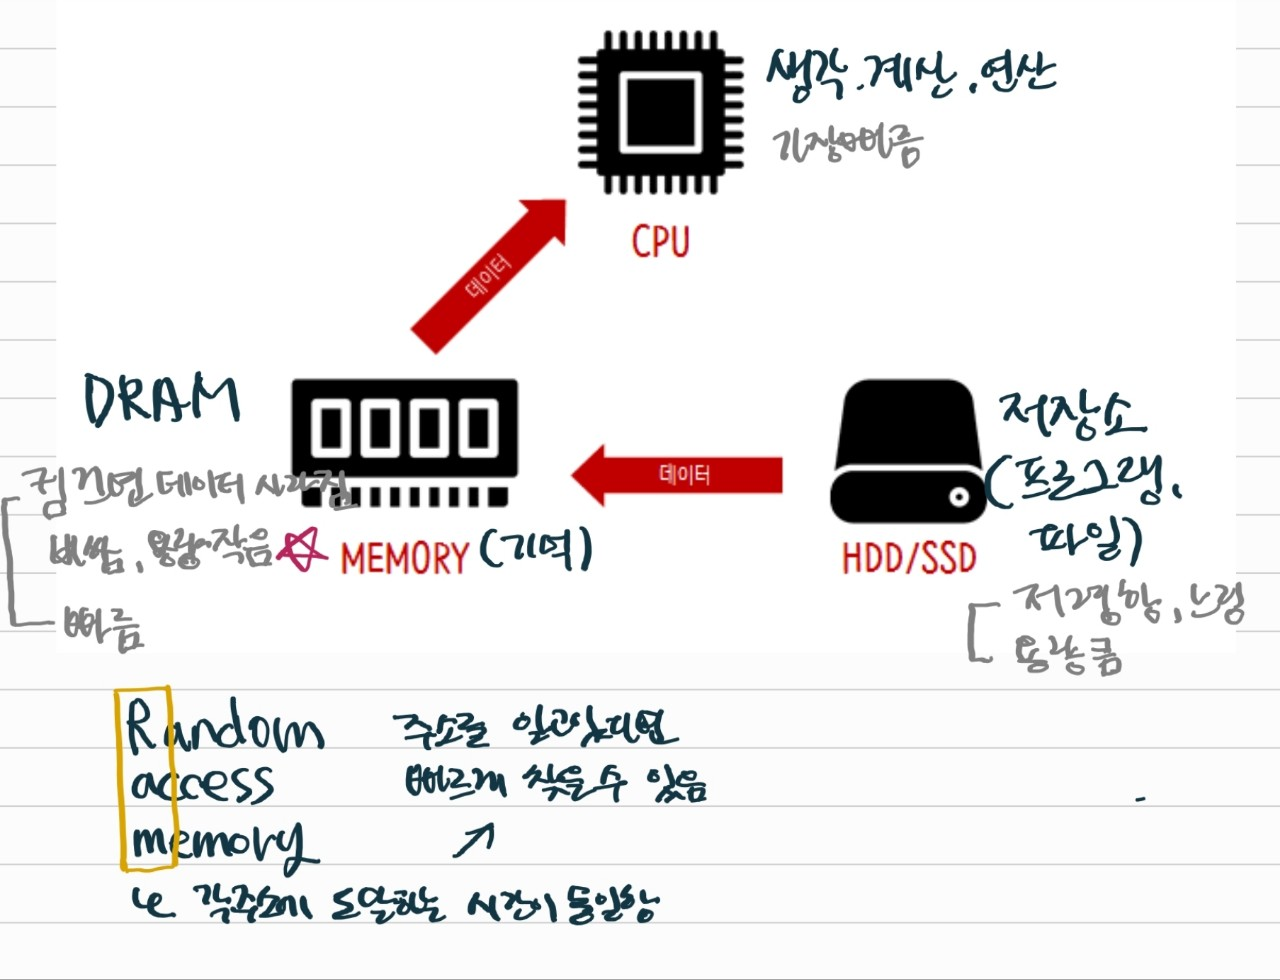 생각.계산.연산
가장빠름
CPU
데이터
DRAM
컴끄면 데이터 사라짐
비쌈, 용량작음
빠름
MEMORY (기억)
데이터
저장소
(프로그램,
파일)
HDD/SSD
저렴함, 느림
용량큼
Random
access
memory
주소를 알고있다면
빠르게 찾을수 있음
각주소에 도달하는 시간이 동일함